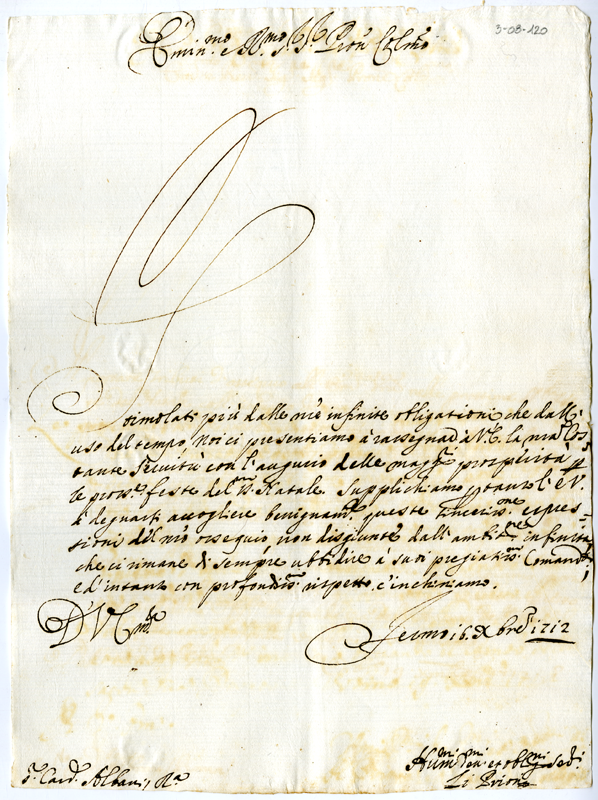 3-03-120
Emin.mo e R.mo Sig.r Sig.r Pron Colmo
Stimolati più dalle n're infinite obligationi che dall'
uso del tempo, noi ci presentiamo à rassegnar à V.E. la n'ra Cos
tante Servitù con l'augurio delle magg.ri prosperità p
le pross.e feste del S. Natale. Supplichiamo p tanto l'E.V.
à degnarsi accogliere benignam.e queste sinceriss.me espres=
sioni del n'ro ossequio, non disgiunte dall'ambit.ne infinita
che ci rimane di sempre ubbidire à suoi pregiatiss.mi Comandi,
e d'intanto con profondiss.mo rispetto c'inchiniamo.
D'V. Em.za
Fermo 16 Xbre 1712
S. Card. Albani, Ra
Hum.mi Dev.mi et obblig.mi Ser.i
Li Priori